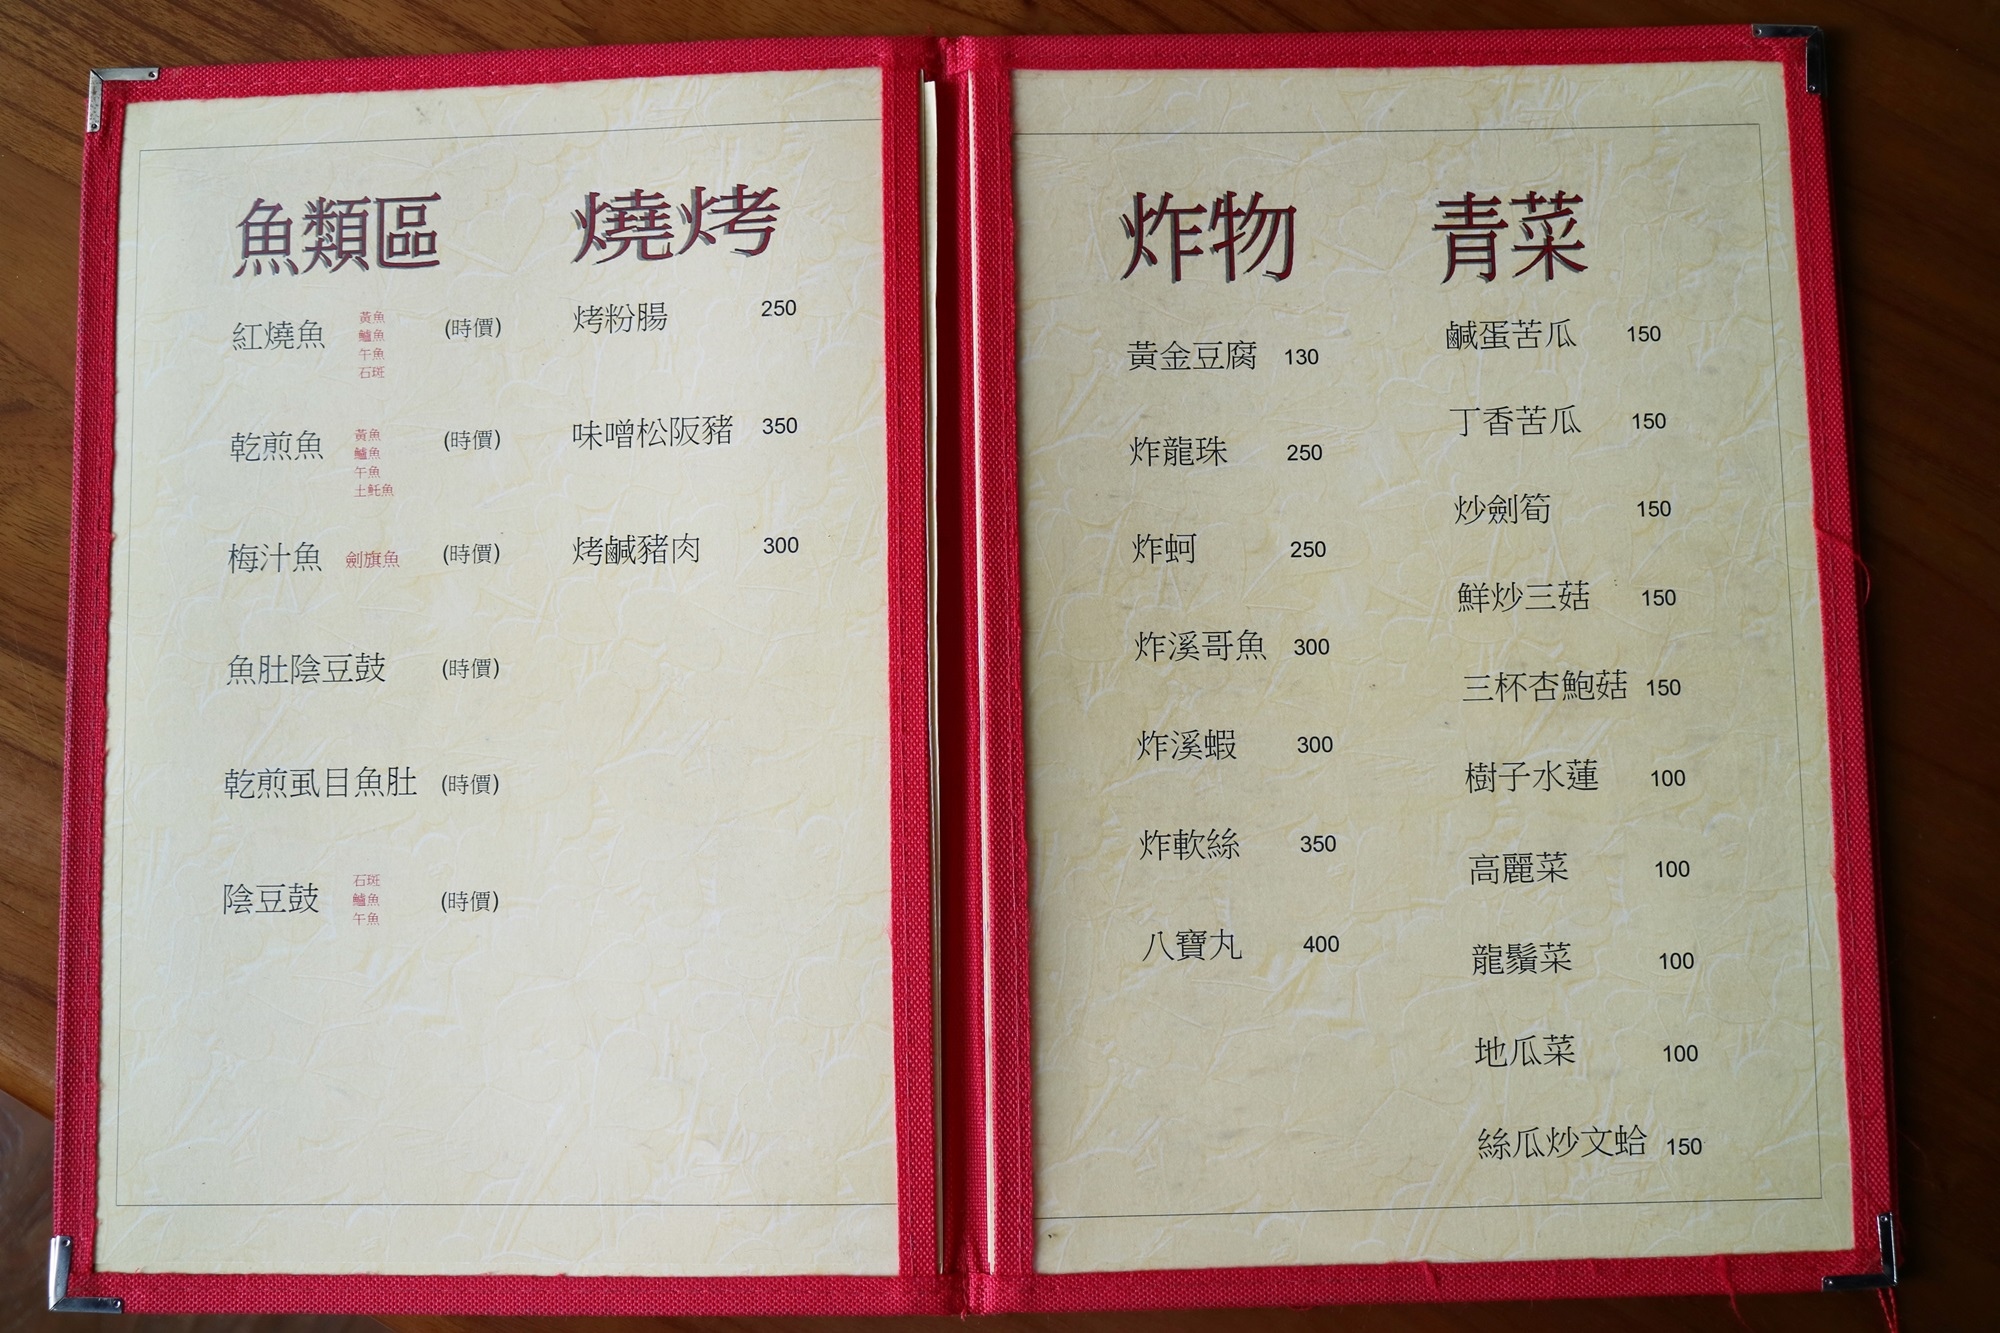 魚類區
紅燒魚 黃魚 鱸魚 午魚 石斑 (時價)
乾煎魚 黃魚 鱸魚 午魚 土魠魚 (時價)
梅汁魚 劍旗魚 (時價)
魚肚陰豆鼓 (時價)
乾煎虱目魚肚 (時價)
陰豆鼓 石斑 鱸魚 午魚 (時價)
燒烤
烤粉腸 250
味噌松阪豬 350
烤鹹豬肉 300
炸物
黃金豆腐 130
炸龍珠 250
炸蚵 250
炸溪哥魚 300
炸溪蝦 300
炸軟絲 350
八寶丸 400
青菜
鹹蛋苦瓜 150
丁香苦瓜 150
炒劍筍 150
鮮炒三菇 150
三杯杏鮑菇 150
樹子水蓮 100
高麗菜 100
龍鬚菜 100
地瓜菜 100
絲瓜炒文蛤 150